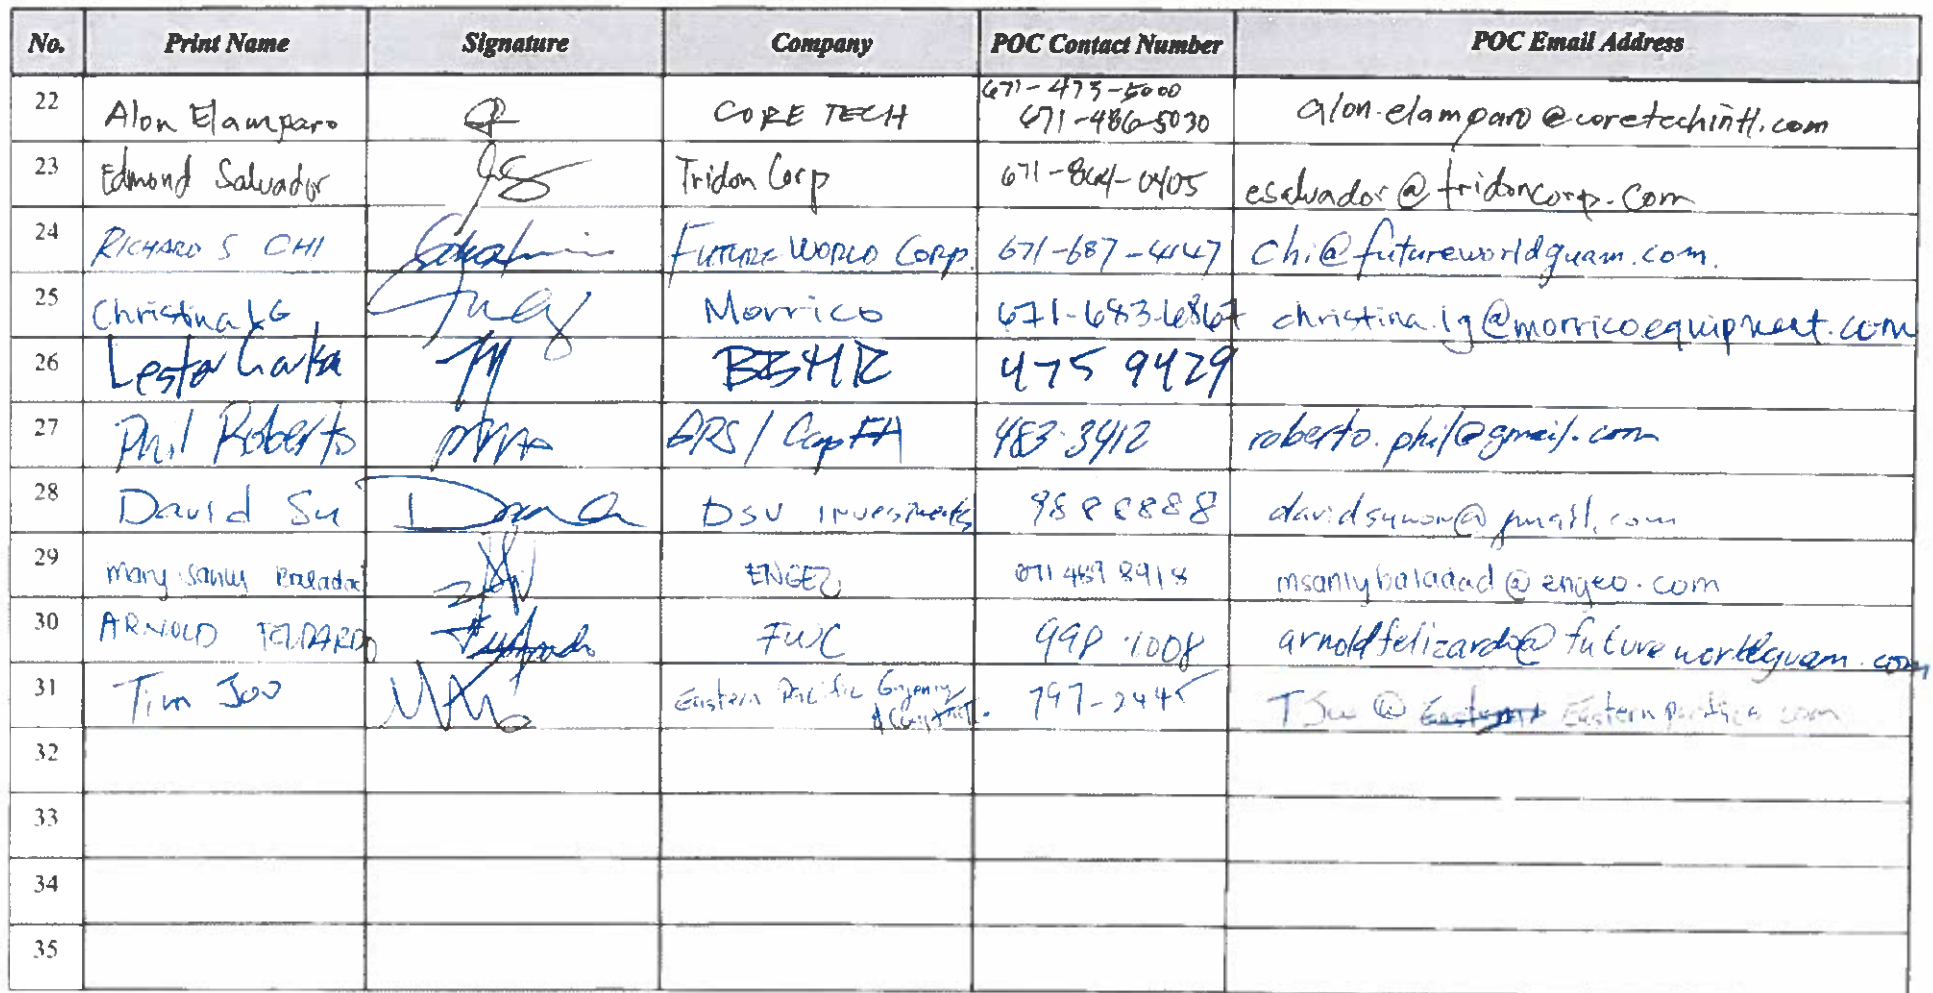 No. Print Name Signature Company POC Contact Number POC Email Address
22 Alon Elamparo CORE TECH 671-473-5000 671-486-5030 alon.elamparo@coretechintl.com
23 Edmond Salvador Tridon Corp 671-864-0405 esalvador@tridoncorp.com
24 RICHARD S CHI FUTURE WORLD CORP. 671-687-4147 chi@futureworldguam.com.
25 Christina LG Morrico 671-683-6867 christina.lg@morricoequipment.com
26 Lester BBMR 475 9429
27 Phil Roberto 483-3412 roberto.phil@gmail.com
28 David Su DSV Investments 9888888
29 Mary Sanly ENGEO msanlybaladad@engeo.com
30 ARNOLD FWC 998-1008 arnoldfelizardo@futureworldguam.com
31 Tim Joo Eastern Pacific 797-2445
32
33
34
35